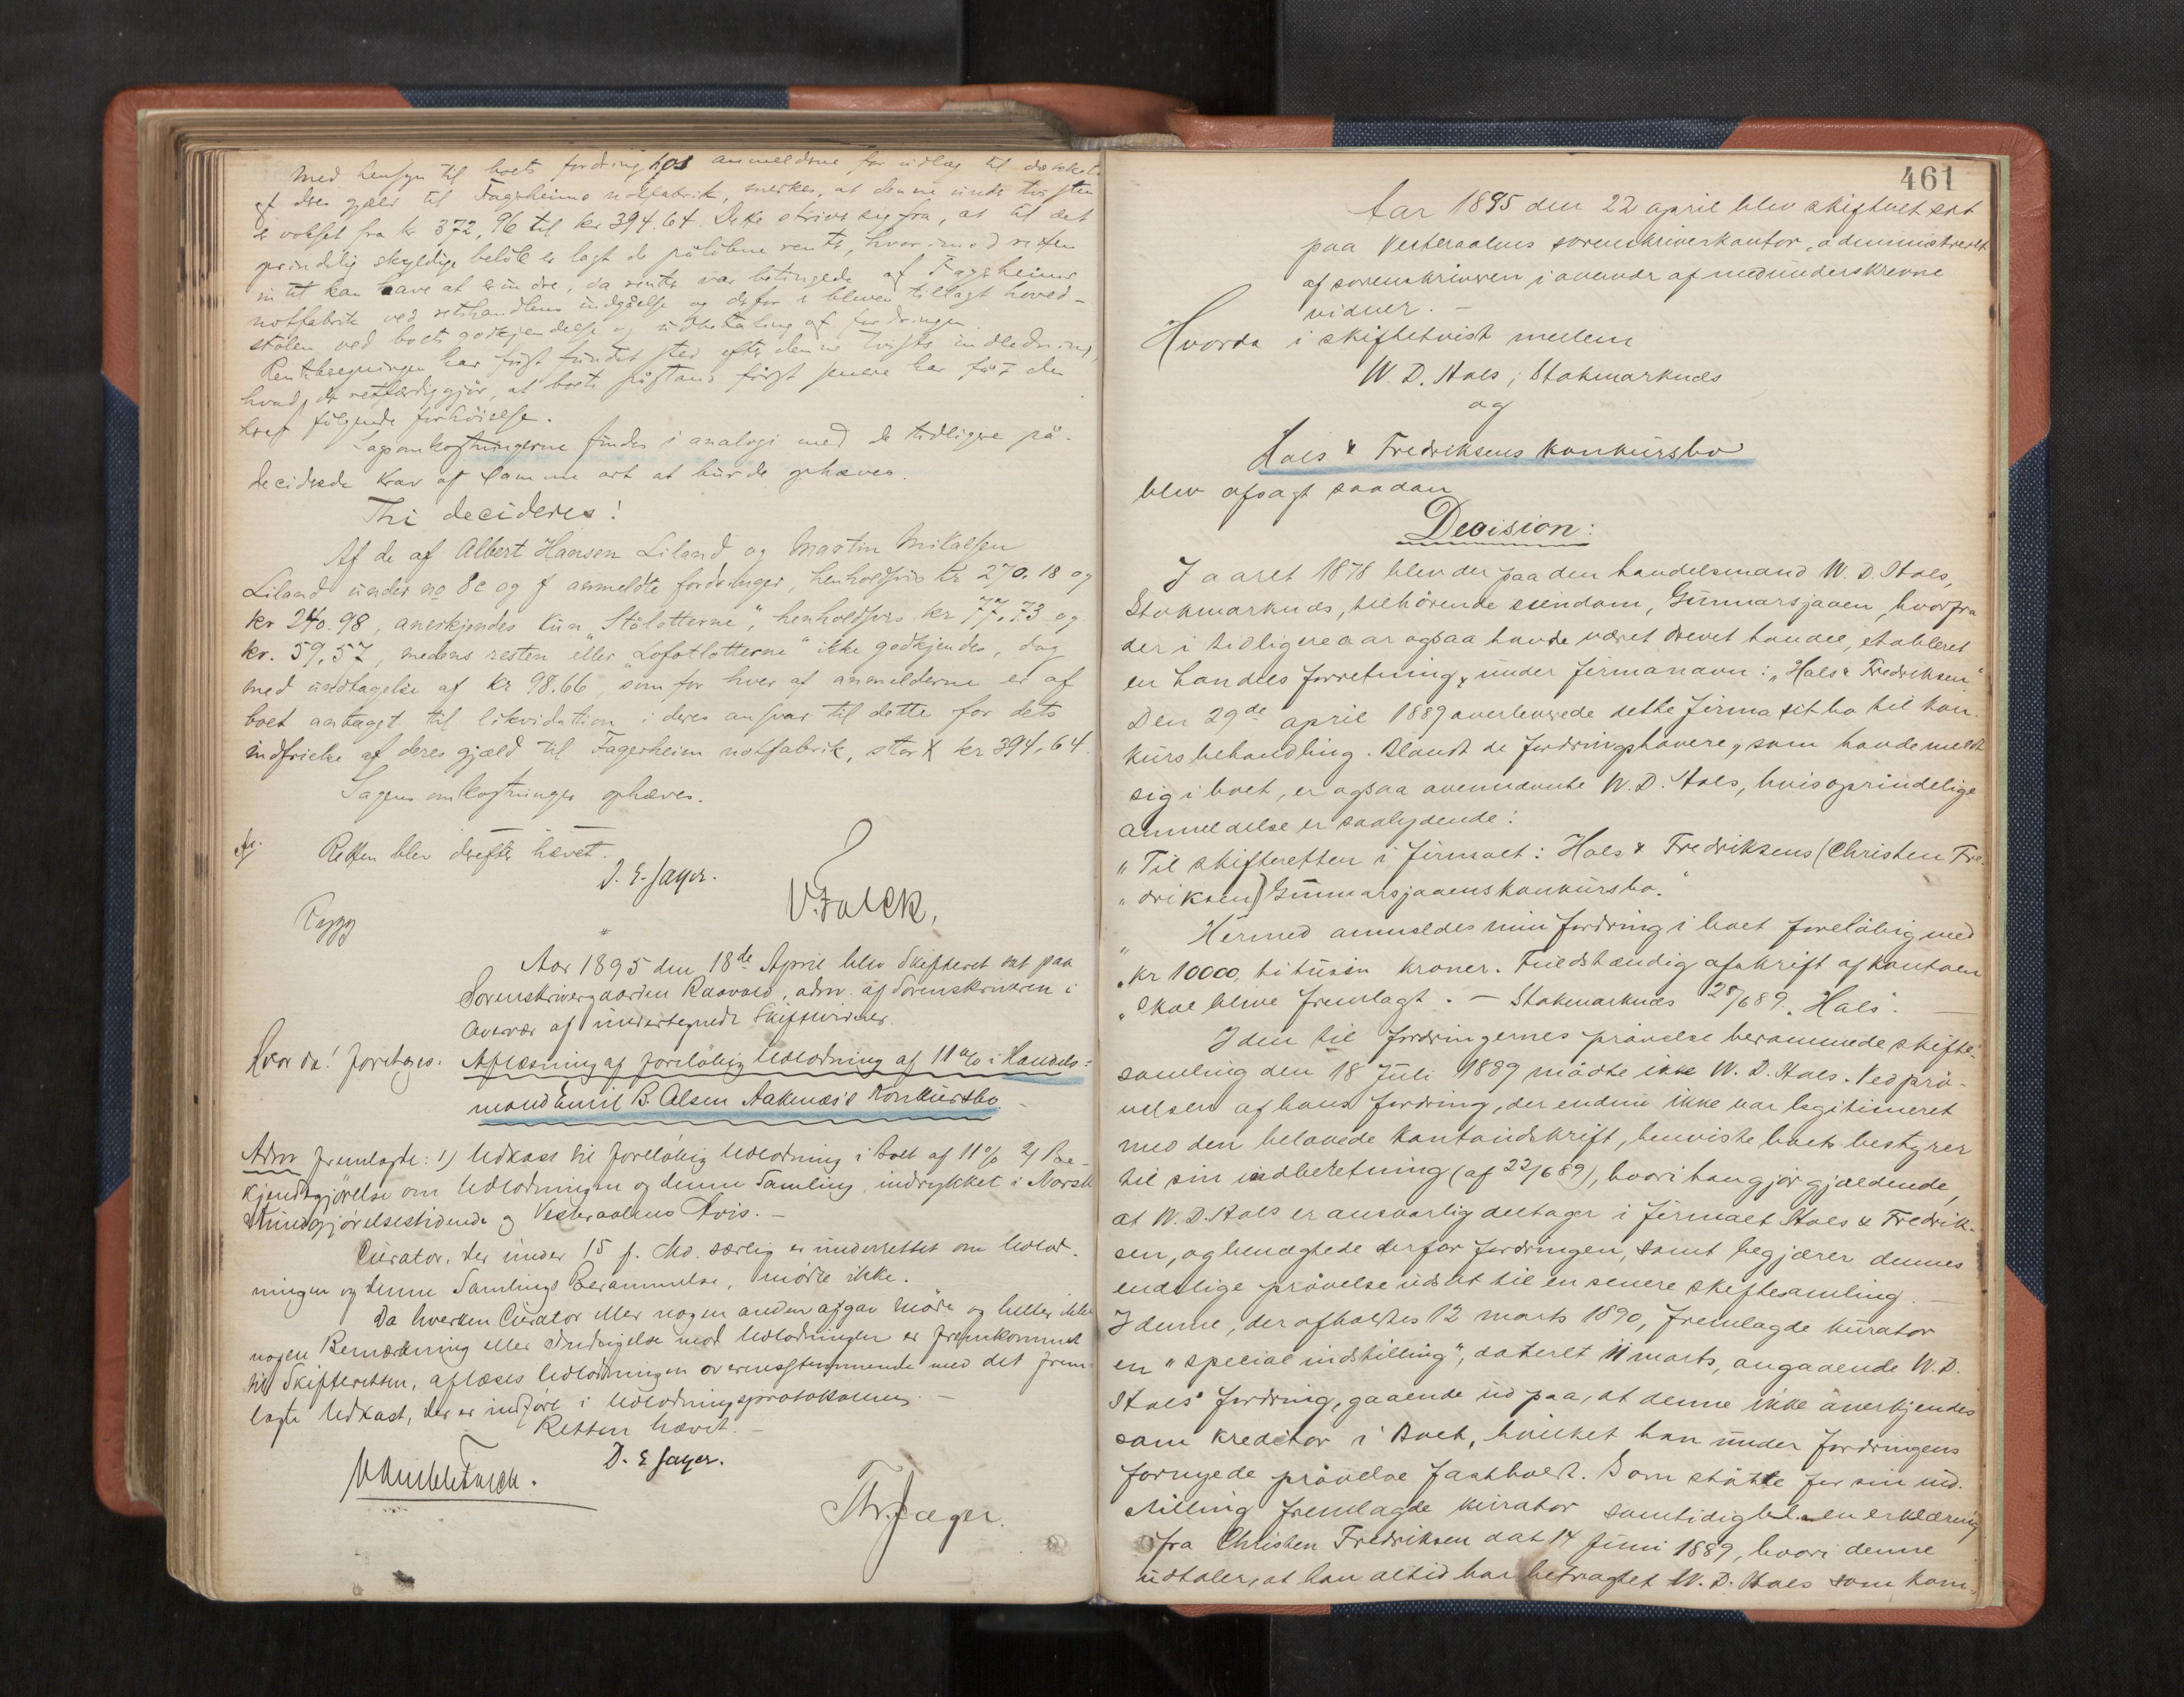 Med hensyn til boets fordring hos anmelderne for udlæg til dækkelse
af deres gjæld til Fagerheims notfabrik, merkes, at denne under tvisten
er vokset fra kr 372,96 til kr 394.64. Dette skriver sig fra, at til det
oprindelig skyldige beløb er lagt de påløbne renter, hvorimod retten
intet kan have at erindre, da renter var betingede af Fagerheims
notfabrik ved retshandlens indgåelse og derfor er bleven tillagt hoved-
stolen ved boets godkjendelse og udbetaling af fordringen.
Renteberegningen har først fundet sted efter denne tvists indledning,
hvad der retfærdiggjør, at boets påstand først senere har fået den
heraf følgende forhøielse.
Sagsomkostningerne findes i analogi med de tidligere på-
deciderede krav af samme art at burde ophæves.
Thi decideres!
Af de af Albert Hansen Liland og Martin Mikalsen
Liland under no 8e og f anmeldte fordringer, henholdsvis kr 270.18 og
kr 240.98, anerkjendes kun "Stølotterne", henholdsvis kr 77,73 og
kr. 59,57, medens resten eller "Lofotlotterne" ikke godkjendes, dog
med undtagelse af kr 98.66, som for hver af anmelderne er af
boet antaget til likvidation i deres ansvar til dette for dets
indfrielse af deres gjæld til Fagerheim notfabrik, stor kr 394,64.
Sagens omkostninger ophæves.
Retten blev derefter hævet.
D. E. Jager.
V. Falck,
Aar 1895 den 18de April blev Skifteret sat paa
Sorenskrivergaarden Raavold, adm. af Sorenskriveren i
Overvær af undertegnede Skiftevidner.
Hvor da! foretoges: Aflæsning af foreløbig Udlodning af 11 % i Handels-
mand Emil B. Olsen Aaknæs's Konkursbo
Adm fremlagte: 1) Udkast til foreløbig Udlodning i Boet af 11 % 2) Be-
kjendtgjørelse om Udlodningen og denne Samling, indrykket i Norsk
Kundgjørelsestidende og Vesteraalens Avis. —
Curator, der under 15 f. Md. særlig er underrettet om Udlod-
ningen og denne Samlings Berammelse, mødte ikke.
Da hverken Curator eller nogen anden afgav Møde og heller ikke
nogen Bemærkning eller Indsigelse mod Udlodningen er fremkommet
til Skifteretten, aflæses Udlodningen overensstemmende med det frem-
lagte Udkast, der er indført i Udlodningsprotokollen. —
Retten hævet. —
D. E Jager.
Th. Jæger.
461
Aar 1895 den 22 april blev skifteret sat
paa Vesteraalens sorenskriverkontor, administreret
af sorenskriveren i overvær af medunderskrevne
vidner. —
Hvorda i skiftetvist mellem
W. D. Hals, Stokmarknæs
og
Hals & Fredriksens konkursbo
blev afsagt saadan
Decision:
I aaret 1878 blev der paa den handelsmand W. D. Hals,
Stokmarknæs, tilhørende eiendom, Gunnarsjaaen, hvorfra
der i tidligere aar ogsaa havde været drevet handel, etableret
en handels forretning under firmanavn: "Hals & Fredriksen"
Den 29de april 1889 overleverede dette firma sit bo til kon-
kursbehandling. Blandt de fordringshavere, som havde meldt
sig i boet, er ogsaa ovennævnte W. D. Hals, hvis oprindelige
anmeldelse er saalydende:
"Til skifteretten i firmaet: Hals & Fredriksens (Christen Fre-
"driksen) Gunnarsjaaens konkursbo."
" Hermed anmeldes min fordring i boet foreløbig med
"kr 10000, titusin kroner. Fuldstændig afskrift af kontoen
"skal blive fremlagt. — Stokmarknæs 28/6 89. Hals". —
I den til fordringernes prøvelse berammede skifte-
samling den 18 Juli 1889 mødte ikke W. D. Hals. Ved prø-
velsen af hans fordring, der endnu ikke var legitimeret
med den belovede kontoudskrift, henviste boets bestyrer
til sin indberetning (af 22/6 89), hvori han gjør gjældende,
at W. D. Hals er ansvarlig deltager i firmaet Hals & Fredrik-
sen, og benægtede derfor fordringen, samt begjærer dennes
endelige prøvelse udsat til en senere skiftesamling. —
I denne, der afholdtes 12 marts 1890, fremlagde kurator
en "special indstilling", dateret 11 marts, angaaende W. D.
Hals' fordring, gaaende ud paa, at denne ikke anerkjendes
som kreditor i Boet, hvilket han under fordringens
fornyede prøvelse fastholdt. Som støtte for sin ind-
stilling fremlagde kurator samtidig bl. a. en erklæring
fra Christen Fredriksen dat 14 Juni 1889, hvori denne
udtaler, at han altid har betragtet W. D. Hals som kom-